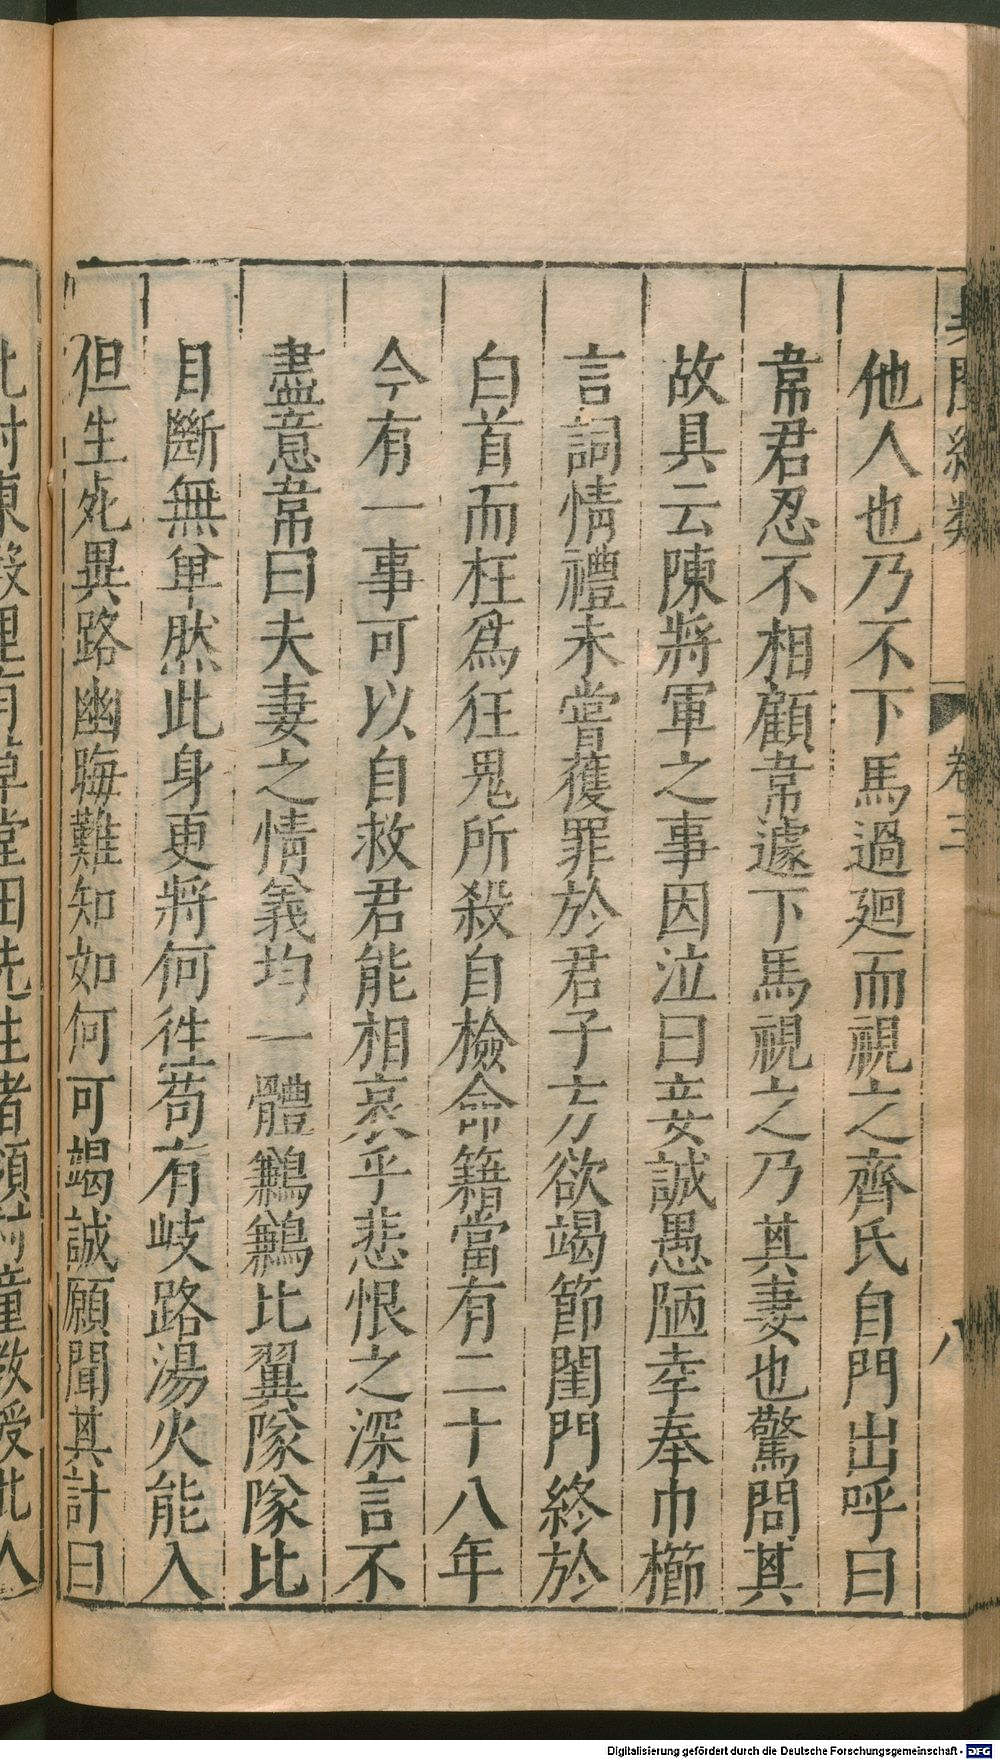 卷三
八
他人也乃不下馬過廻而視之齊氏自門出呼曰
韋君忍不相顧韋遽下馬視之乃其妻也驚問其
故具云陳將軍之事因泣曰妾誠愚陋幸奉巾櫛
言詞情禮未嘗獲罪於君子方欲竭節閨門終於
白首而枉爲狂鬼所殺自檢命籍當有二十八年
今有一事可以自救君能相哀乎悲恨之深言不
盡意韋曰夫妻之情義均一體鶼鶼比翼隊隊比
目斷無单然此身更將何徃苟有岐路湯火能入
但生死異路幽晦難知如何可竭誠願聞其計曰
Digitalisierung gefördert durch die Deutsche Forschungsgemeinschaft - DFG